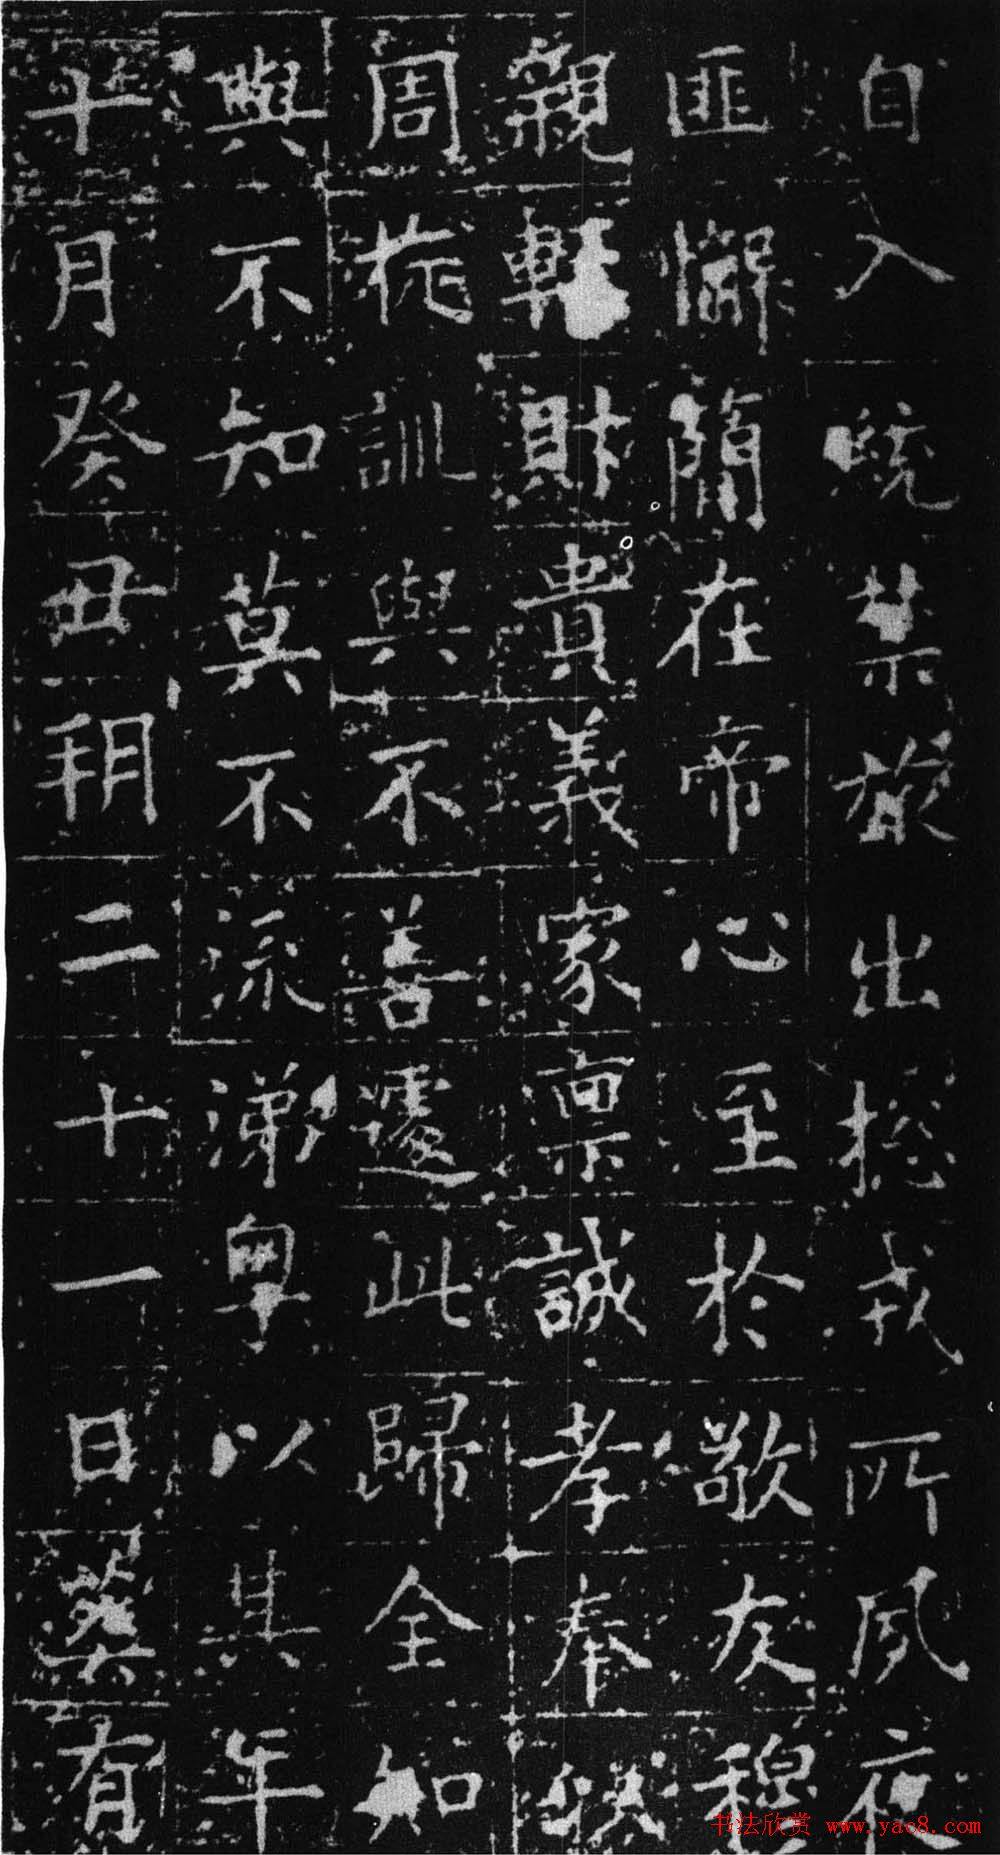 自入統禁旅出揔戎所夙夜
匪懈簡在帝心至於敬友穆
親輕財貴義家稟誠孝奉
周旋訓與不善遽此歸全知
與不知莫不流涕粵以其年
十月癸丑朔二十一日葬有
书法欣赏 www.yac8.com